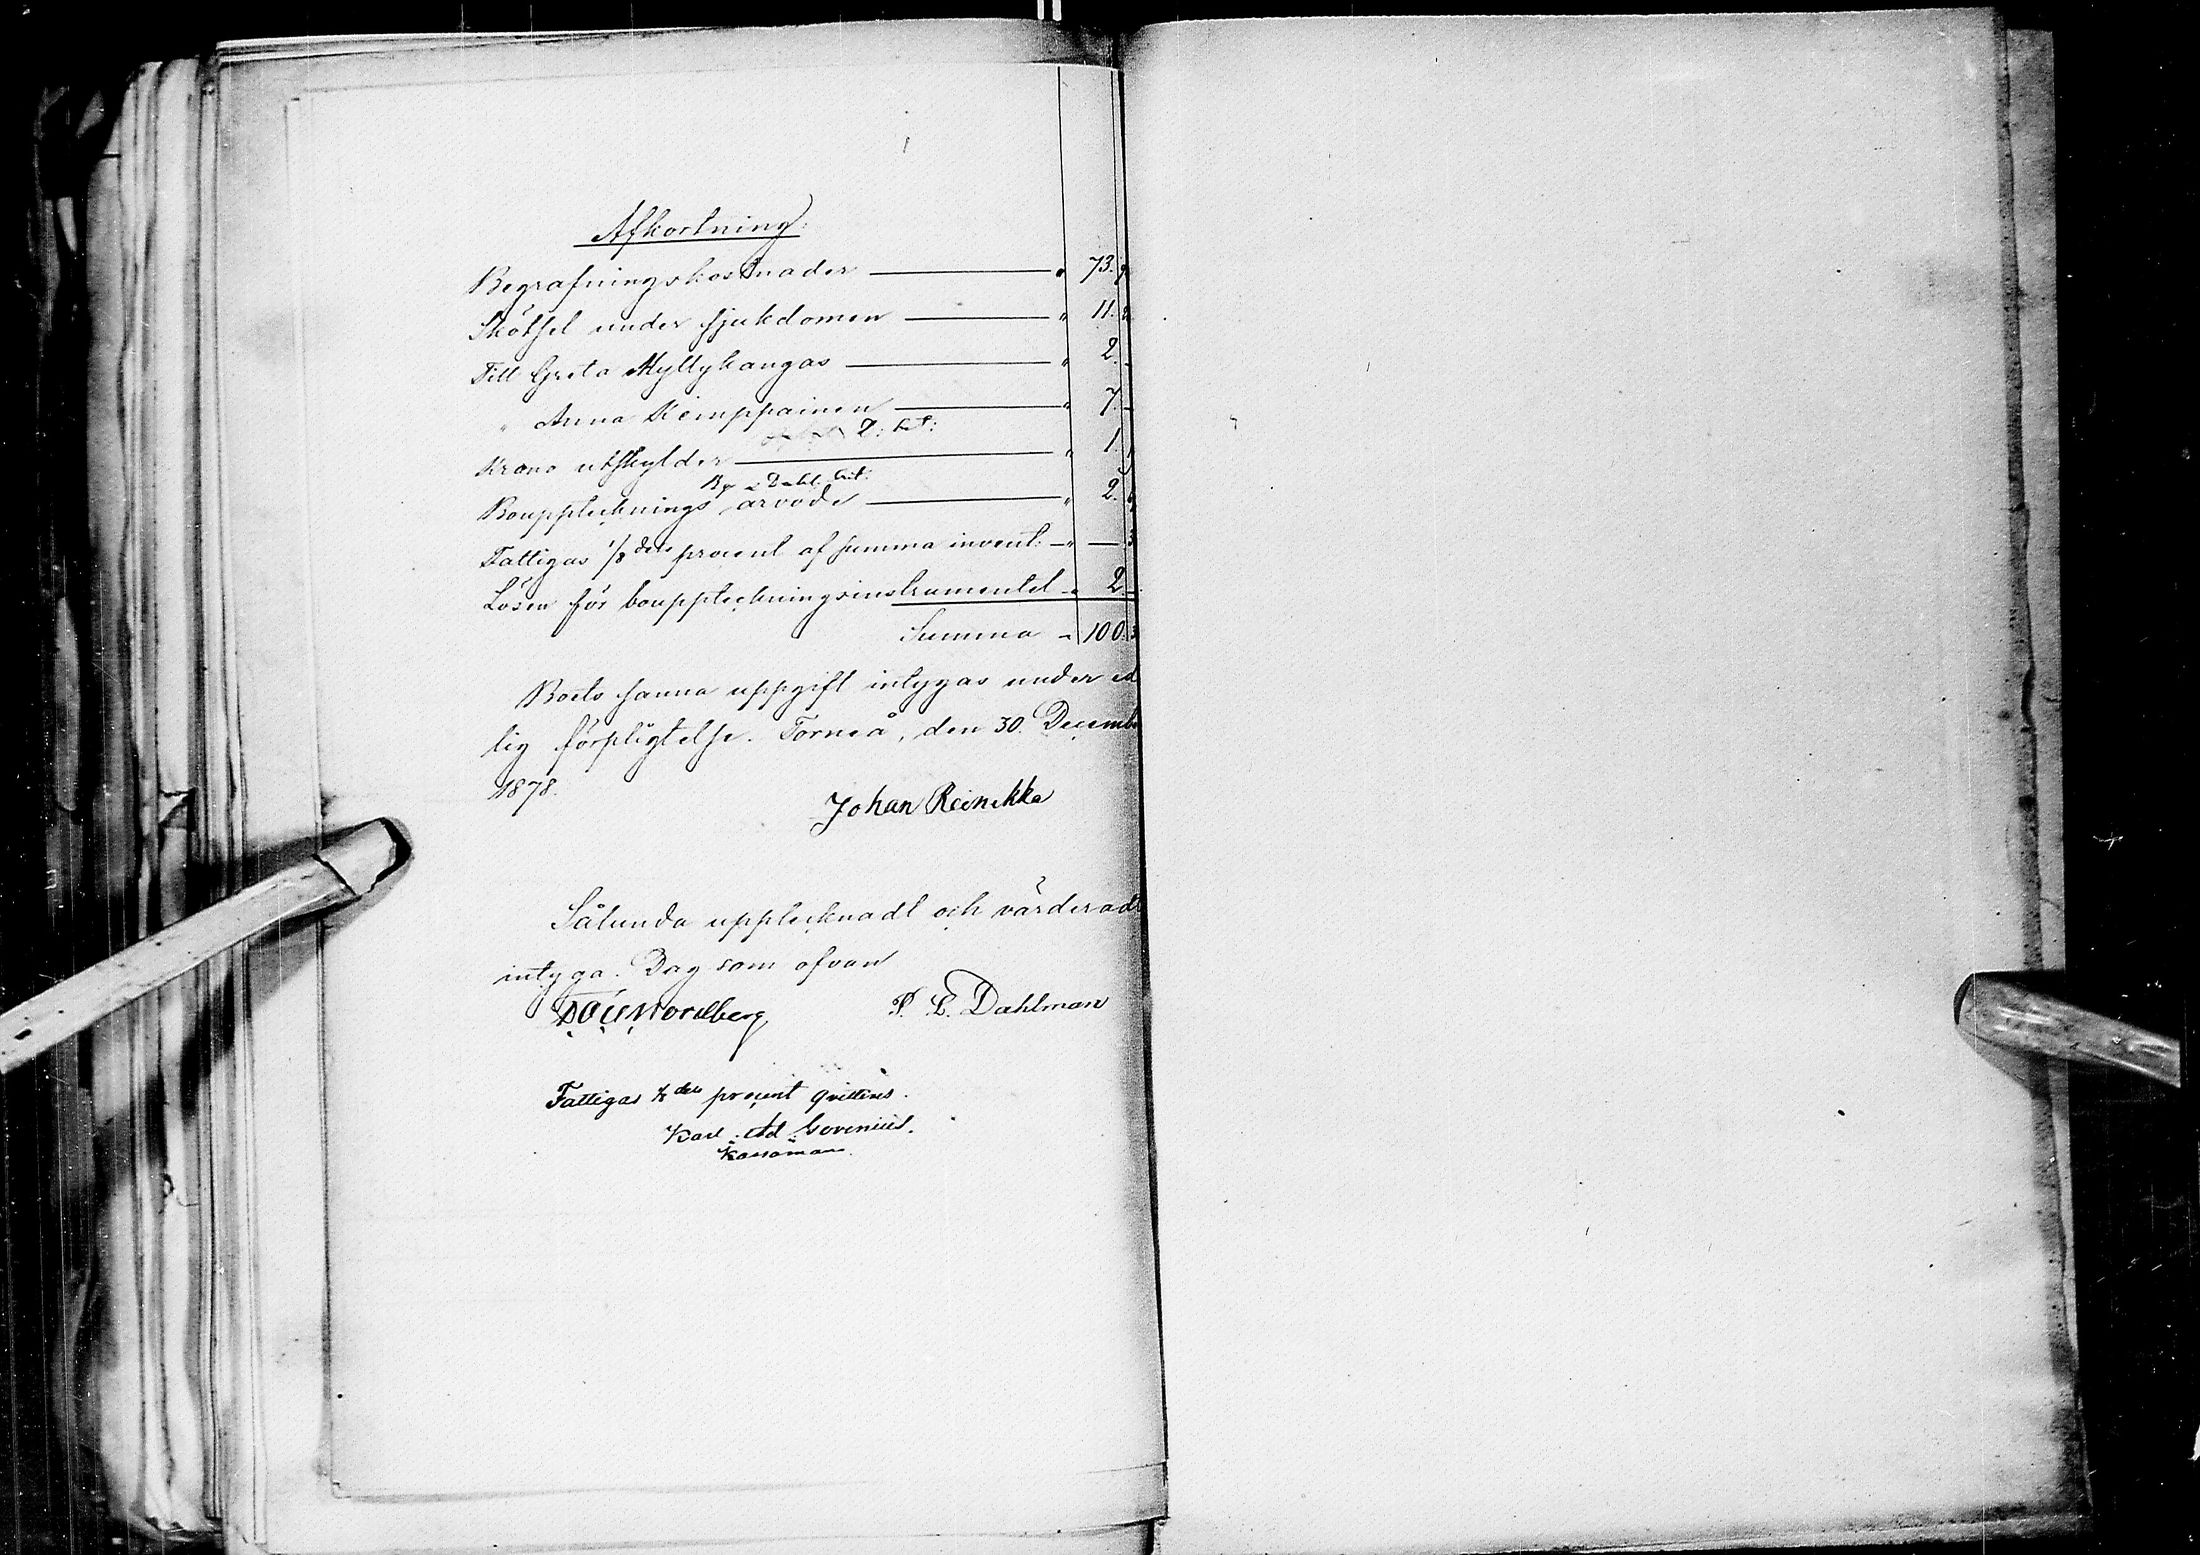 Afkortning:
Begrafningskostnader — " 73.
Skötsel under sjukdomen — " 11.
Till Greta Myllykangas — " 2. -
" Anna Kemppainen — " 7. -
2: bet:
Krono utskylder — " 1.
Bg Dahl. bet:
Boupptecknings arvode — " 2.
Fattigas 1/8 dels procent af summa invent: — " —
Lösen för bouppteckningsinstrumentet — " 2. -
Summa — 100.
Boets sanna uppgift intygas under ed
lig förpligtelse. Torneå, den 30. Decembe
1878.
Johan Reinikka
Sålunda upptecknadt och värderadt
intyga. Dag som ofvan
Nordberg
P. E. Dahlman
Fattigas 1/8 dels procent qvitteras.
Karl Ad
Kassaman.